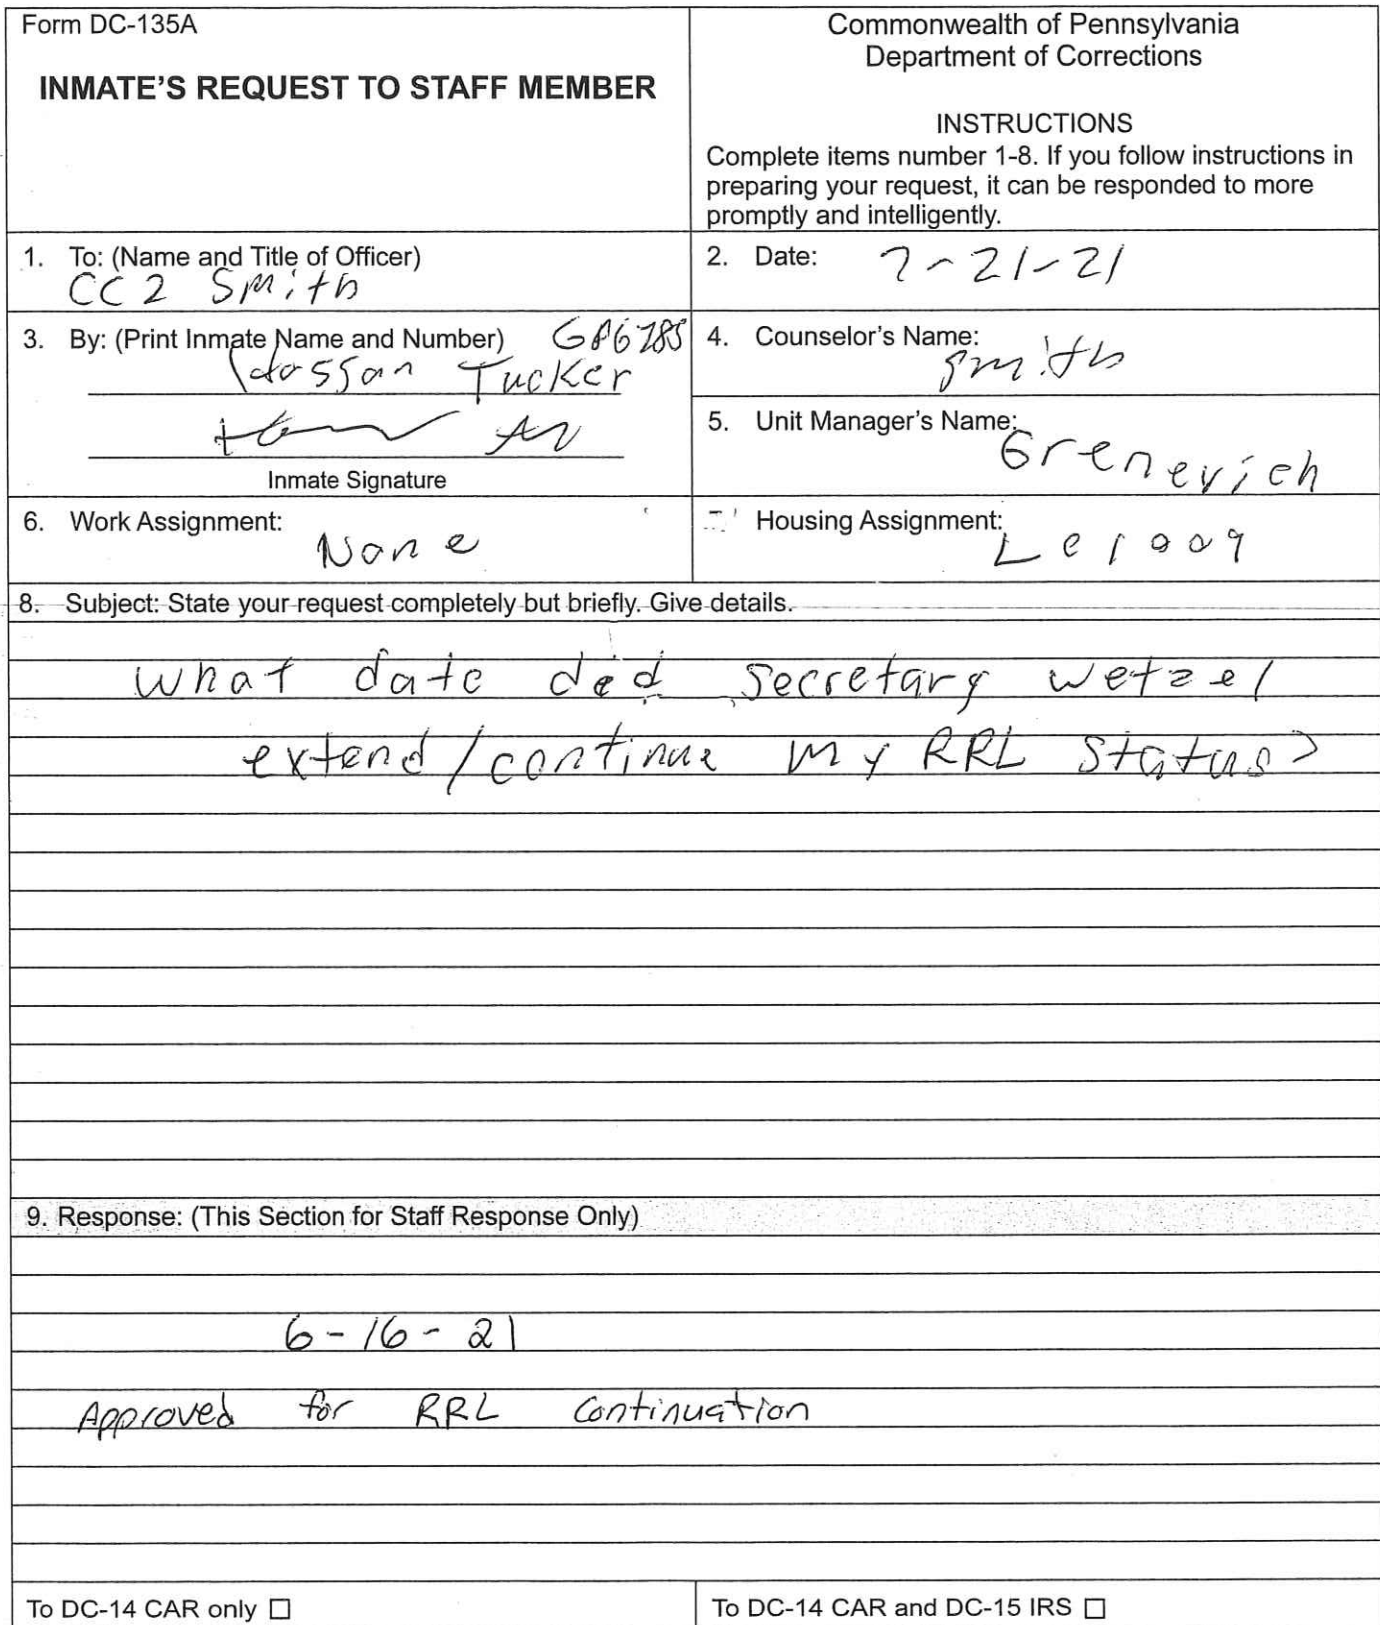 Form DC-135A
INMATE'S REQUEST TO STAFF MEMBER
Commonwealth of Pennsylvania
Department of Corrections
INSTRUCTIONS
Complete items number 1-8. If you follow instructions in
preparing your request, it can be responded to more
promptly and intelligently.
1. To: (Name and Title of Officer)
CC2 Smith
2. Date: 7-21-21
3. By: (Print Inmate Name and Number)
Tucker
Inmate Signature
4. Counselor's Name:
Smith
5. Unit Manager's Name:
Grenevich
6. Work Assignment:
None
Housing Assignment:
8. Subject: State your request completely but briefly. Give details.
what date did secretary wetzel
extend/continue my RRL status?
9. Response: (This Section for Staff Response Only)
6-16-21
Approved for RRL Continuation
To DC-14 CAR only
To DC-14 CAR and DC-15 IRS